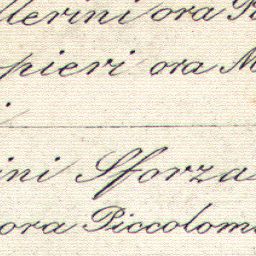 llerini ora P
pieri ora M
i
ini Sforza
ora Piccolom